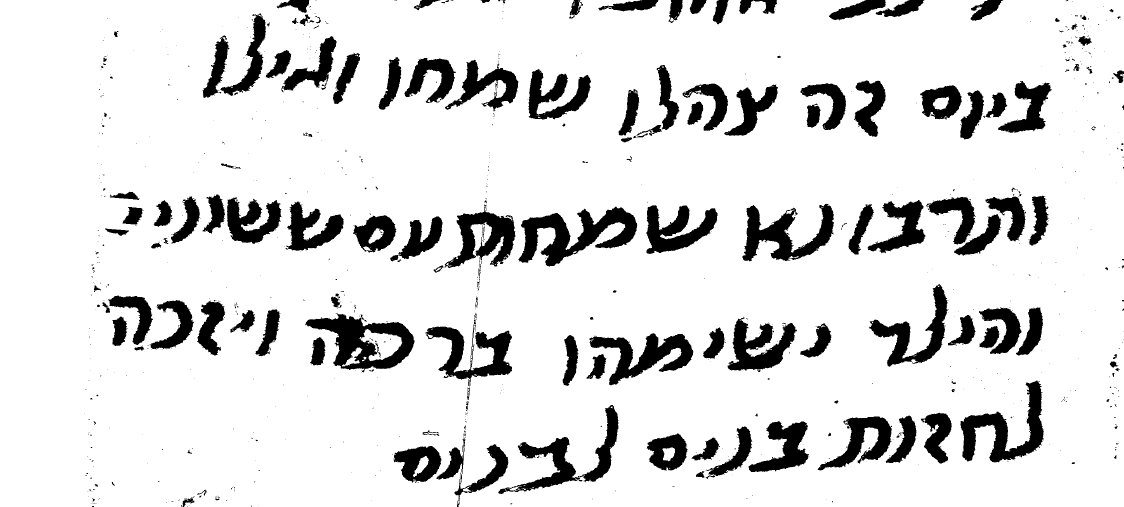 ביום זה צהלו שמחו וגילו
והרבו נא שמחת עם ששוני
והילד ישימהו ברכה ויזכה
לחזות בנים לבנים